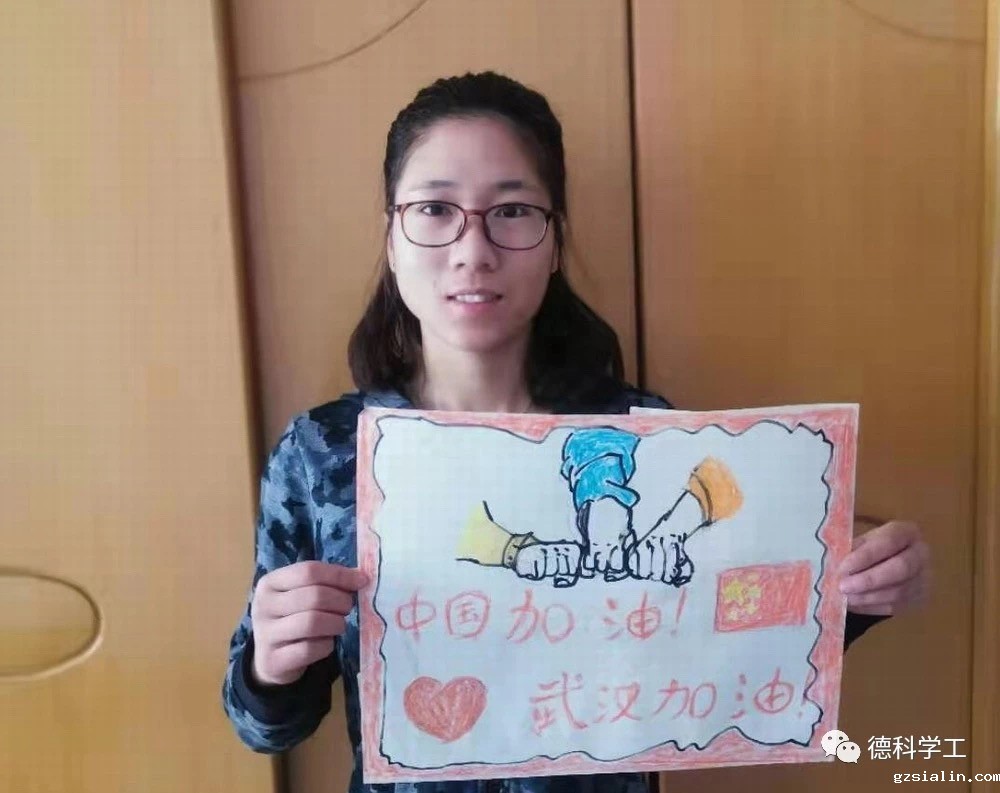 中国加油!
武汉加油!
德科学工
gzsialin.com